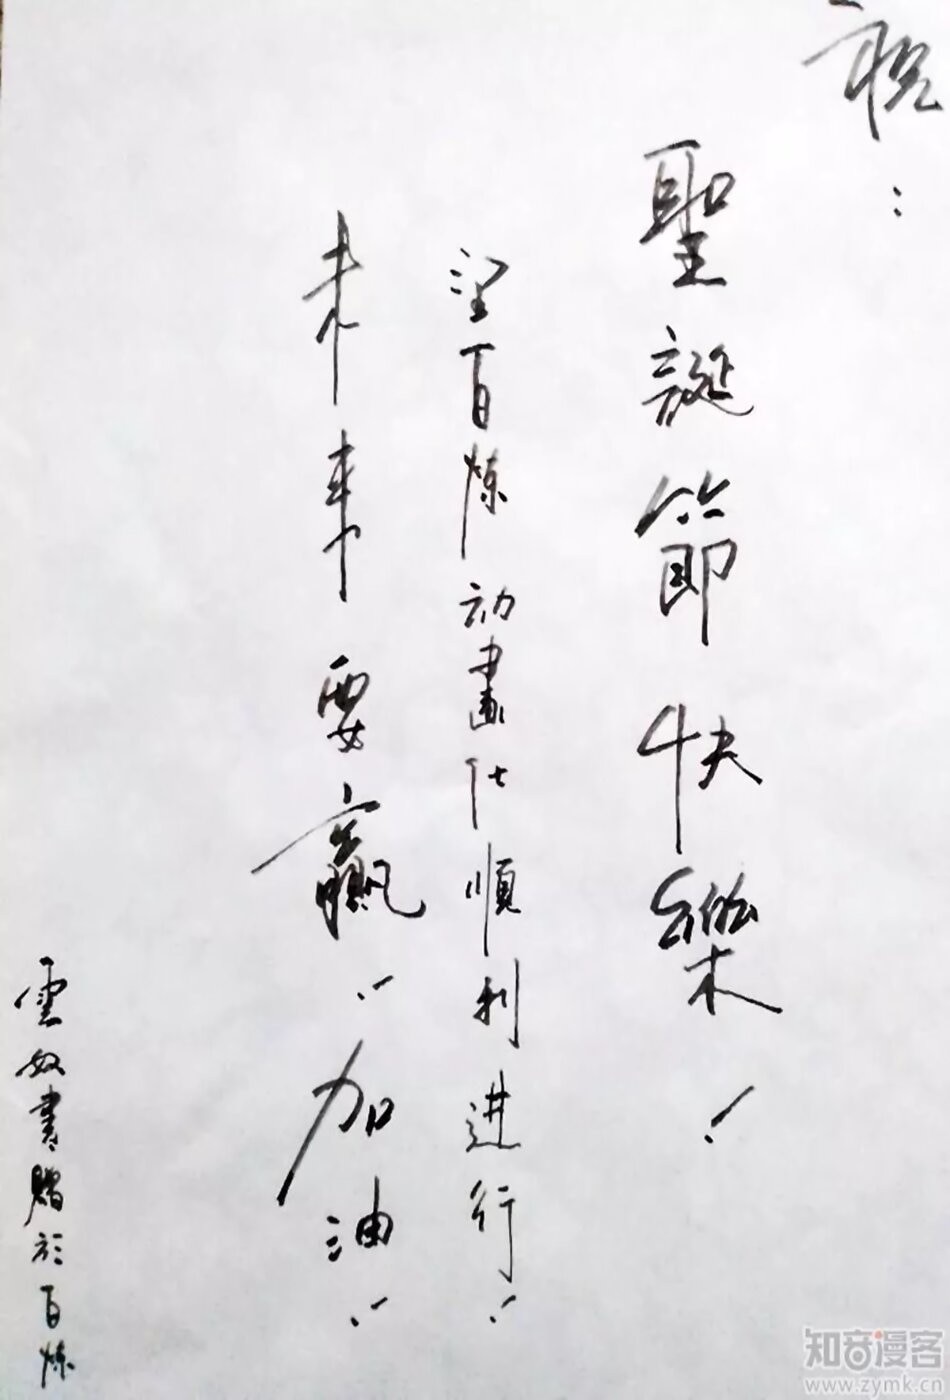 祝：
聖誕節快樂！
望百炼动畫化順利进行！
未来要赢！加油！
雲奴書贈於百炼
知音漫客
www.zymk.cn